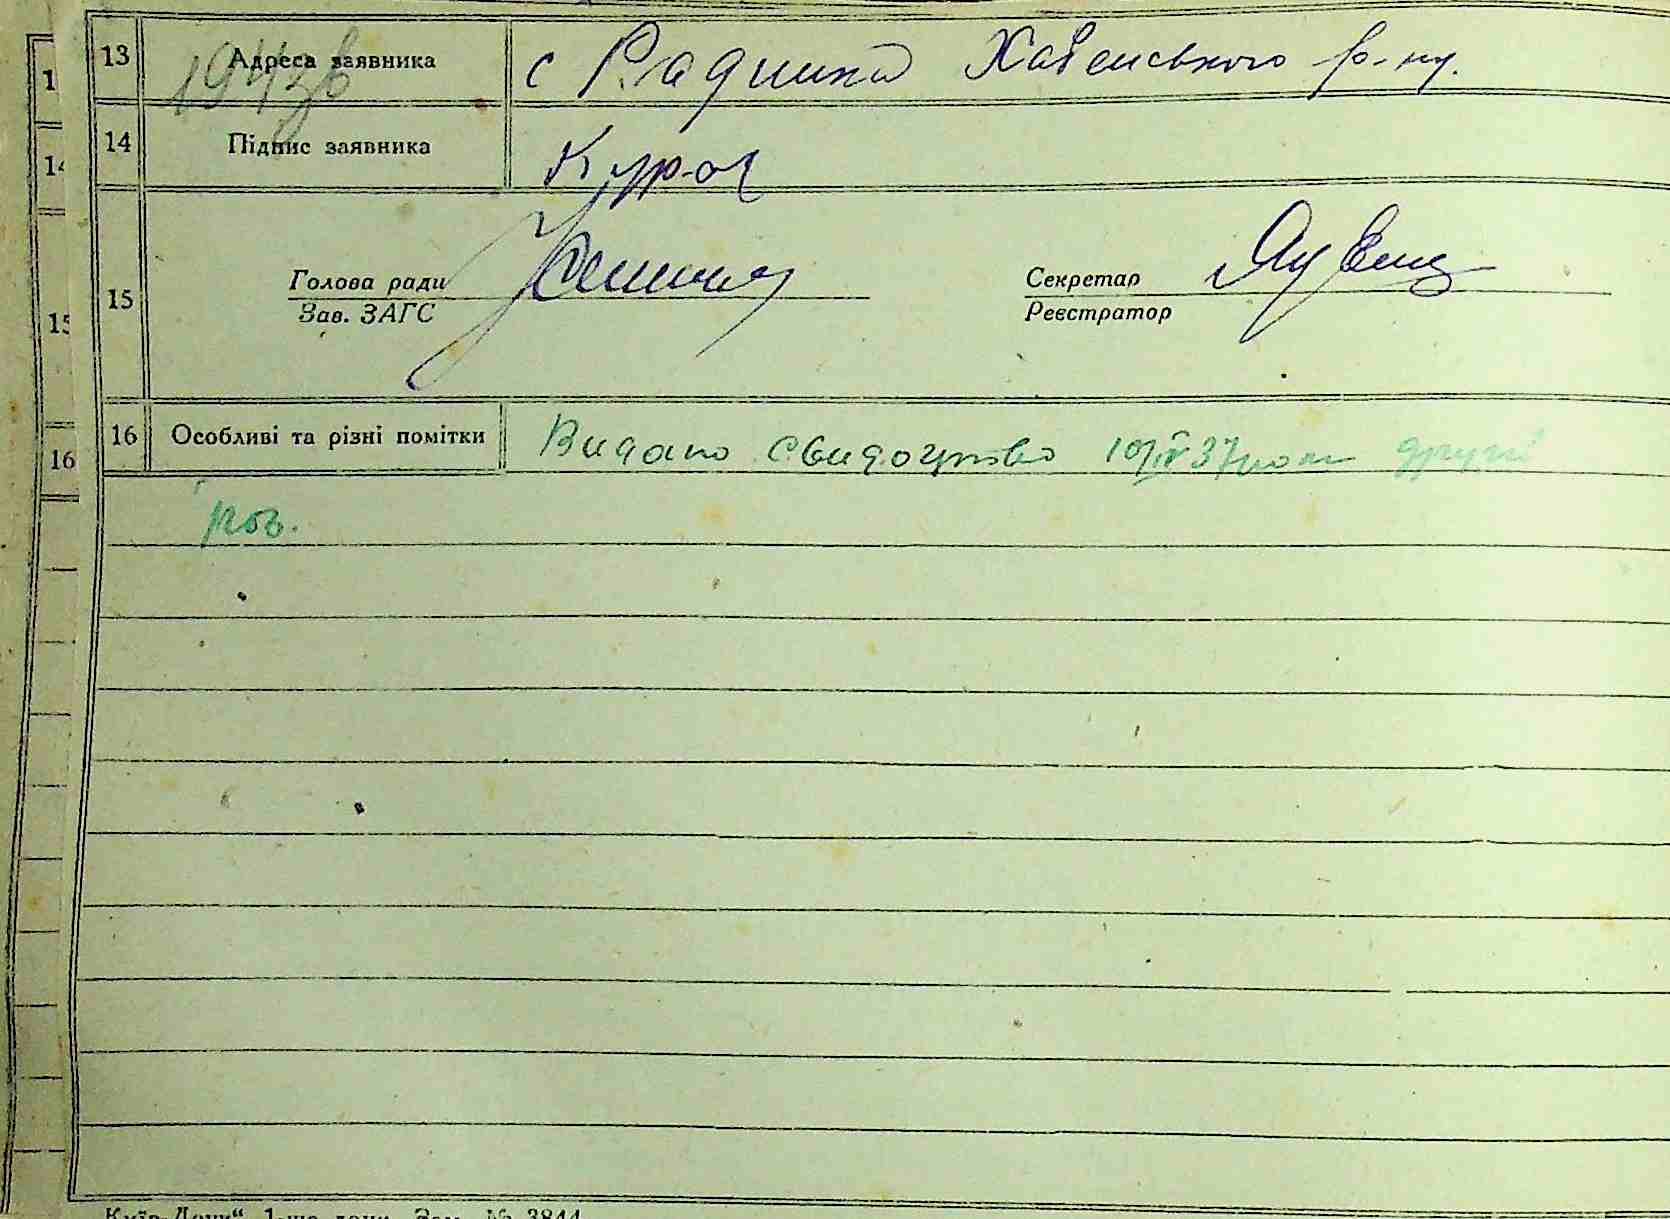 13 Адреса заявника с Радинка Хабенського р-ну.
14 Підпис заявника
15 Голова ради Секретар
Зав. ЗАГС Реєстратор
16 Особливі та різні помітки Видано свидоцтво 10/IV 37 роки другі
раз.
1
14
15
16
1-ша друк. Зам. № 3844